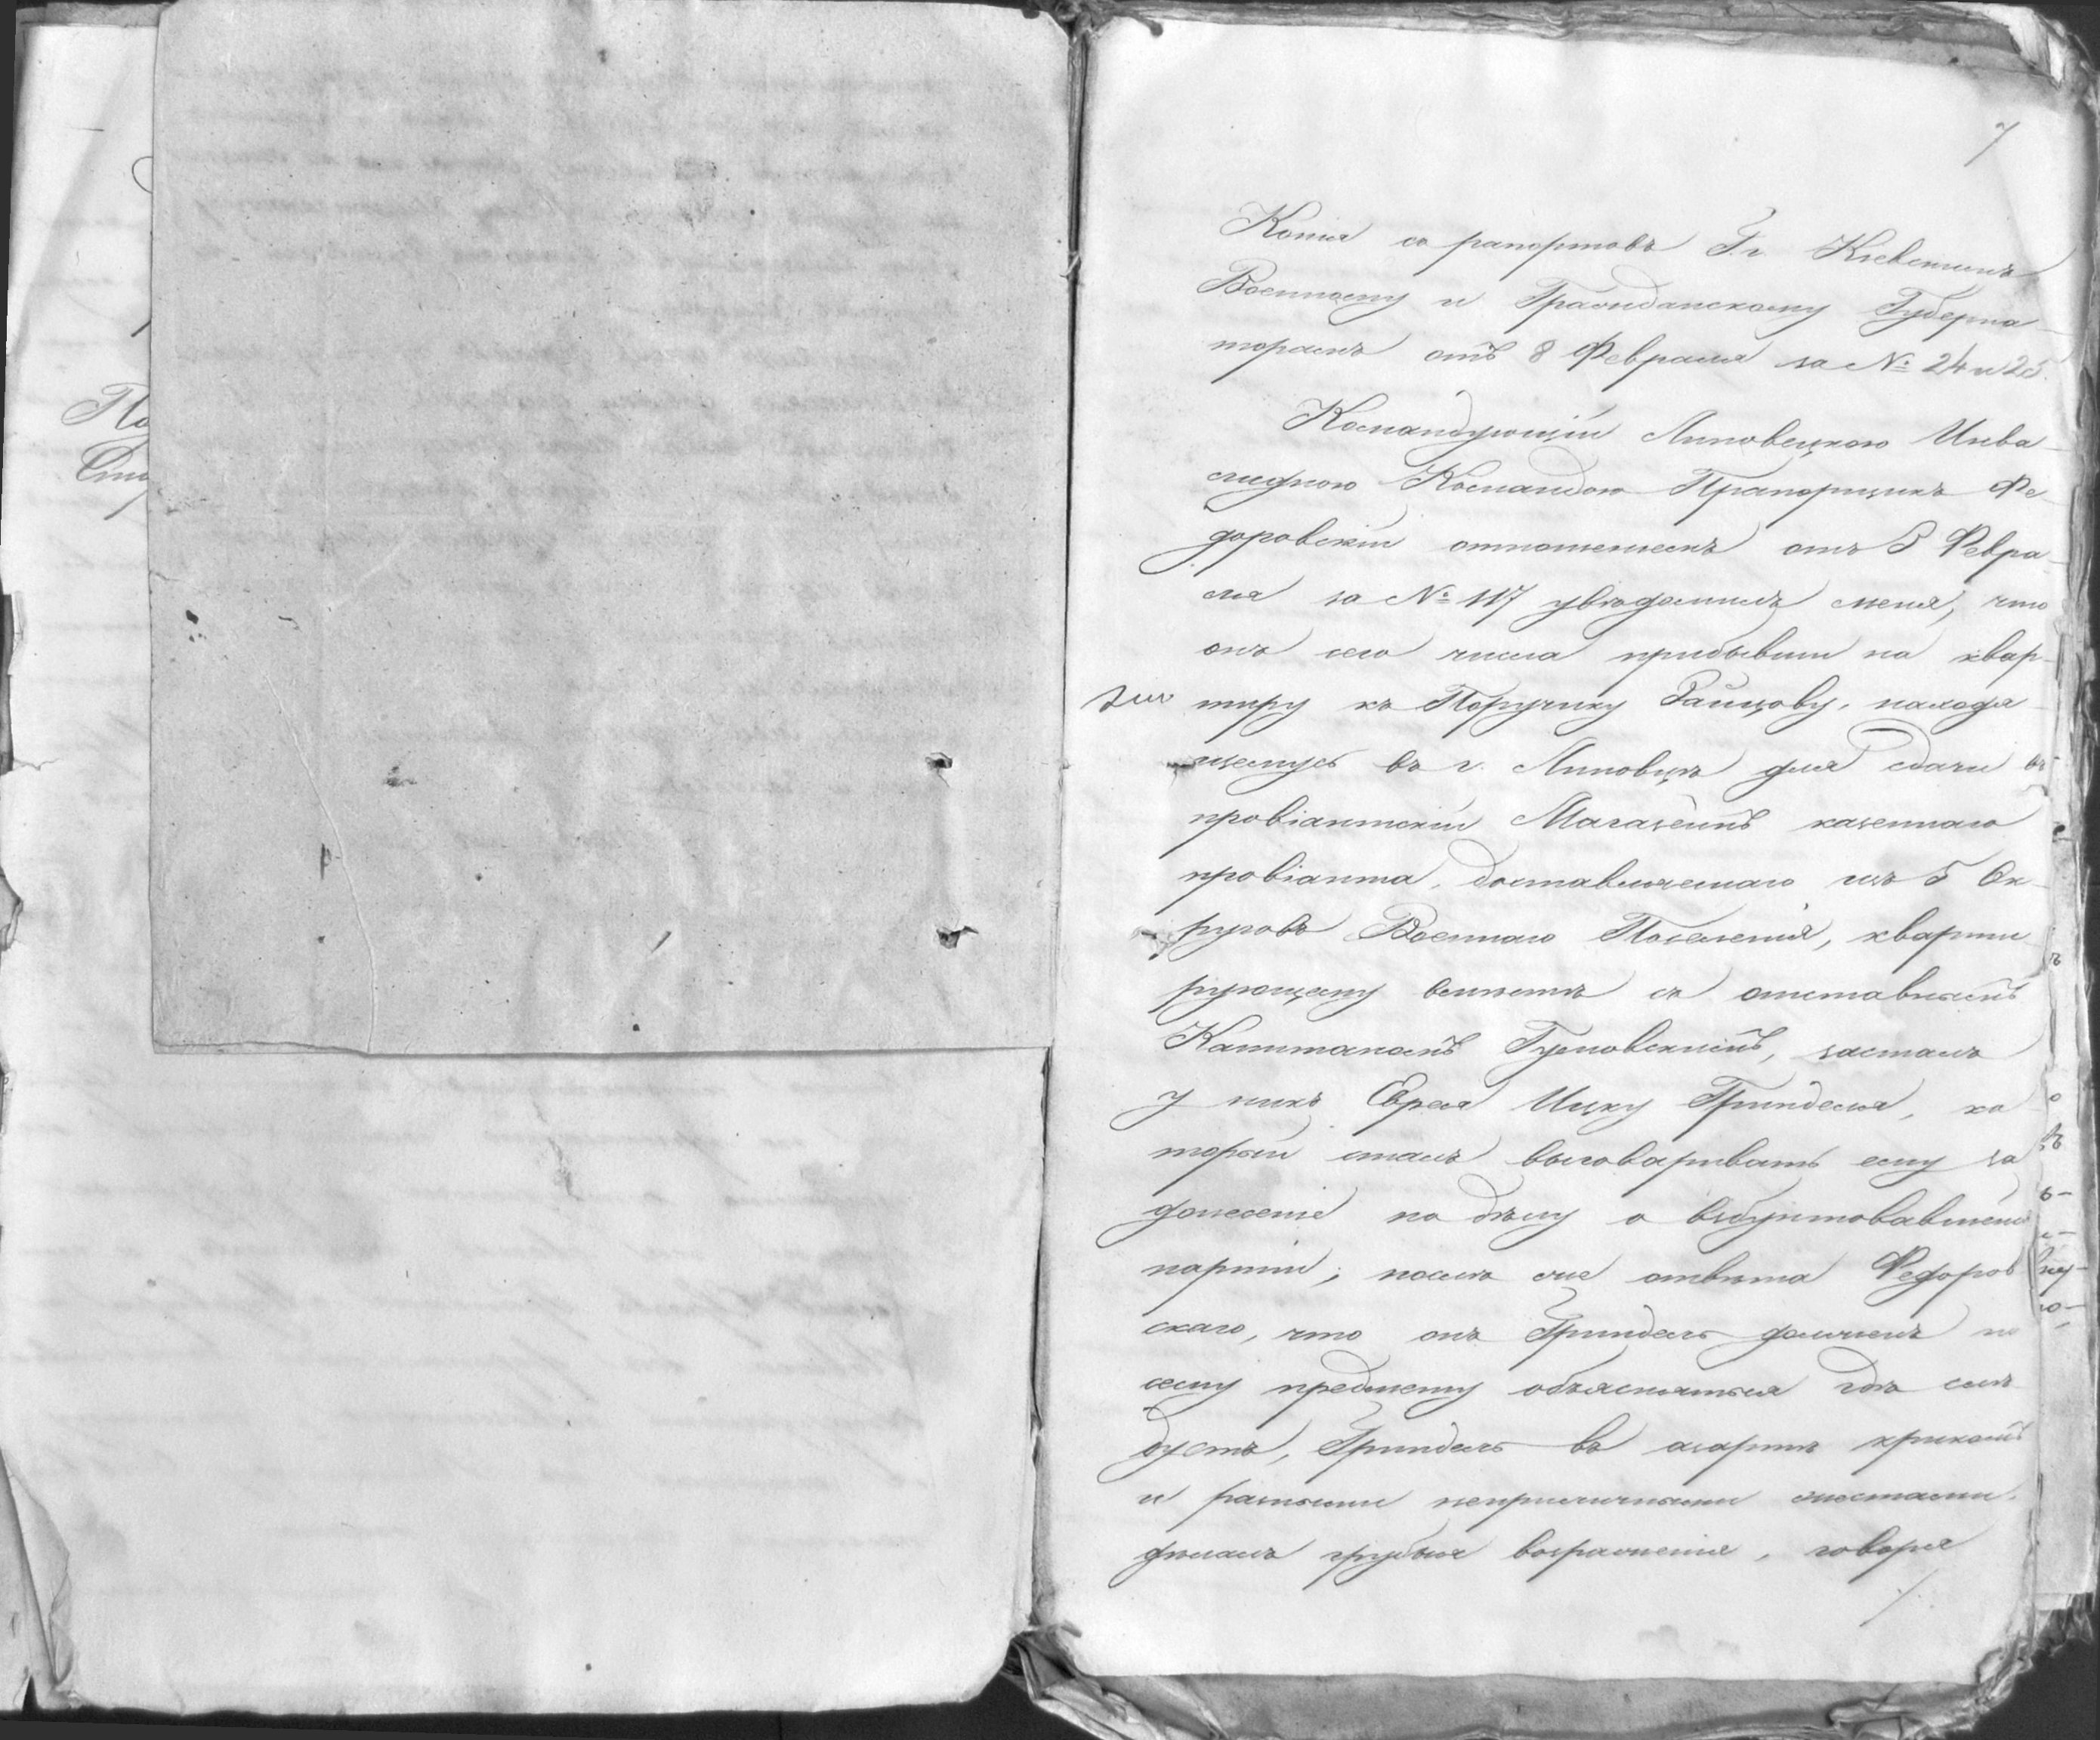 7
Копія съ рапортовъ Г.г. Кіевскимъ
Военному и Гражданскому Губерна-
торамъ отъ 8 Февраля за № 24 и 25.
Командующій Липовецкою Инва-
лидною Командою Прапорщикъ Фе-
доровскій отношеніемъ отъ 5 Февра-
ля за № 117 увѣдомилъ меня, что
онъ сего числа прибывши на квар-
тиру къ Поручику Зайцову, находя-
щемусь въ г. Липовцѣ для сдачи въ
провіантскій Магазейнъ казеннаго
провіанта, доставляемаго изъ 5 Ок-
руговъ Военнаго Поселенія, кварти-
рующему вмѣстѣ съ отставнымъ
Капитаномъ Гумовскимъ, засталъ
у нихъ Еврея Ицку Гринделя, ко-
торый сталъ выговаривать ему за
донесеніе по дѣлу о взбунтовавшей
партіи; послѣ же отвѣта Федоров
скаго, что онъ Гриндель долженъ по
сему предмету объясняться гдѣ слѣ
дуетъ, Гриндель въ азартѣ крикомъ
и разными неприличными жестами,
дѣлалъ грубыя возраженія, говоря
./.
По